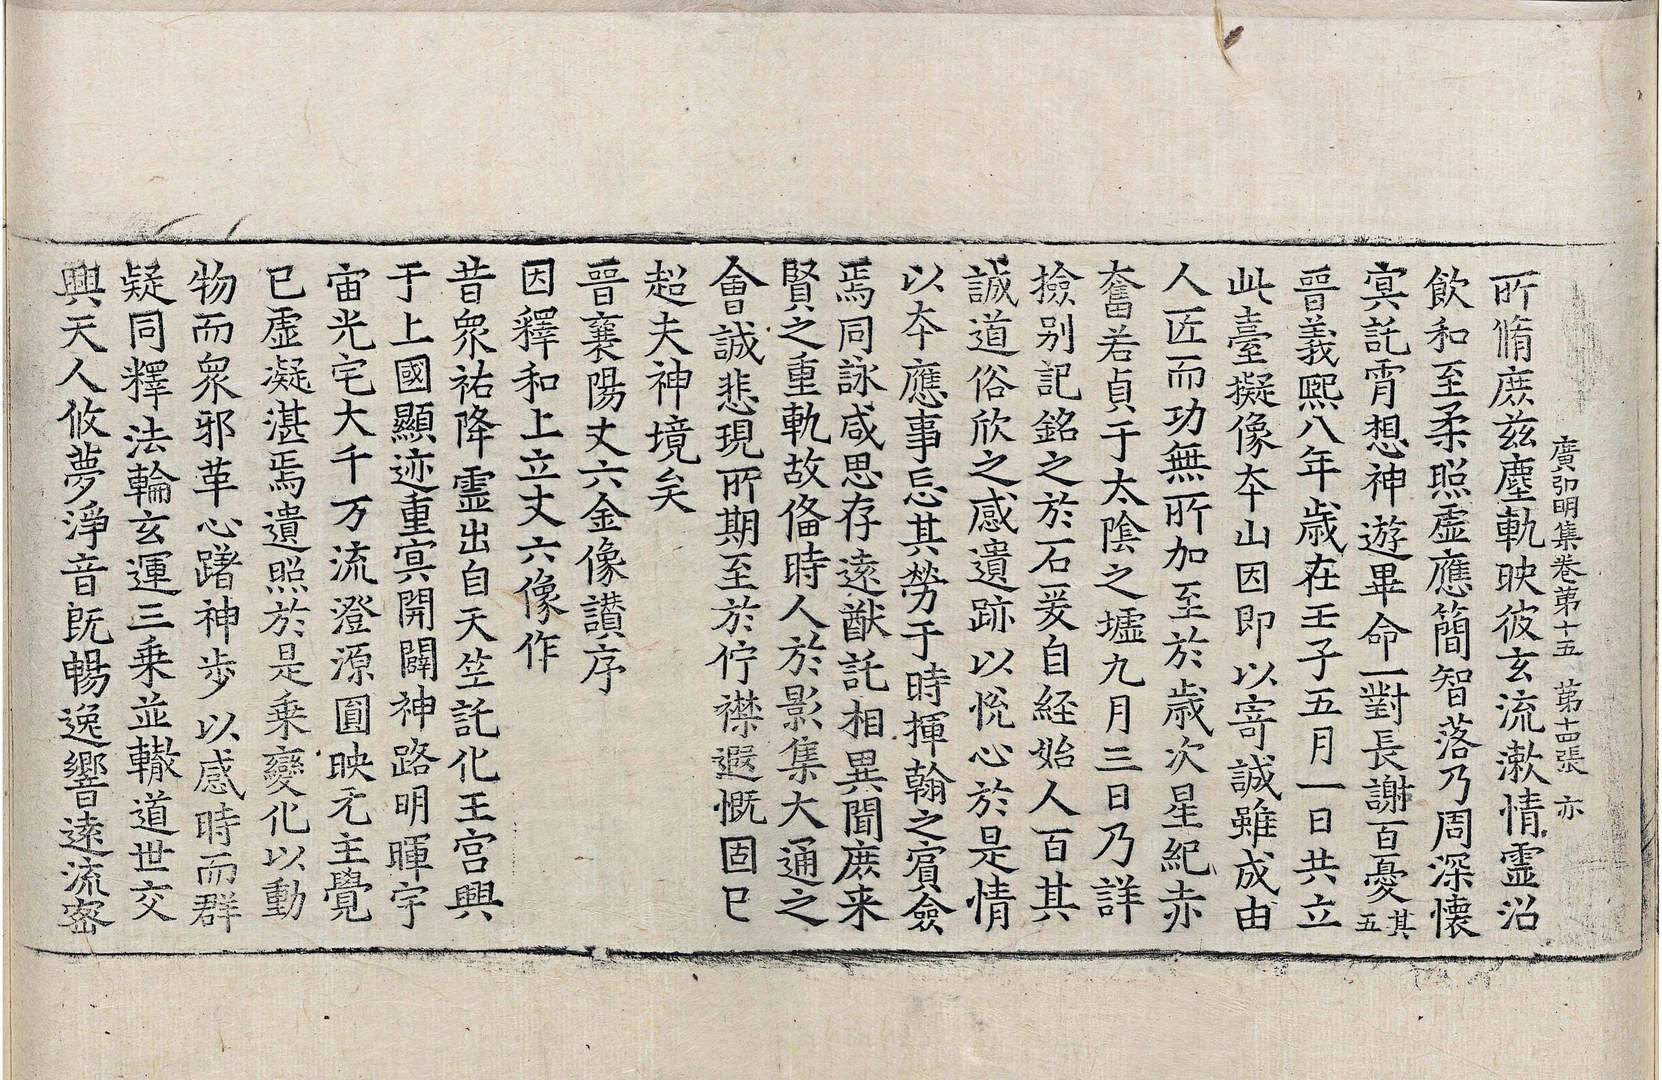 廣弘明集卷第十五 第十四張 亦
所脩庶兹塵軌映彼玄流漱情霊沼
飲和至柔照虚應簡智落乃周深懐
㝠託霄想神遊畢命一對長謝百憂其五
晉義熙八年歳在壬子五月一日共立
此臺擬像本山因即以寄誠雖成由
人匠而功無所加至於歳次星紀赤
奮若貞于太陰之墟九月三日乃詳
撿别記銘之於石爰自経始人百其
誠道俗欣之感遺跡以悅心於是情
以本應事忘其勞于時揮翰之賔僉
焉同詠咸思存逺猷託相異聞庶来
賢之重軌故俻時人於影集大通之
會誠悲現所期至於佇襟遐慨固已
超夫神境矣
晉襄陽丈六金像讃序
因釋和上立丈六像作
昔衆祐降霊出自天竺託化王宫興
于上國顯迹重㝠開闢神路明暉宇
宙光宅大千万流澄源圓映无主覺
已虚凝湛焉遺照於是乗變化以動
物而衆邪革心躇神歩以感時而群
疑同釋法輪玄運三乗並轍道世交
興天人攸夢淨音既暢逸響逺流密